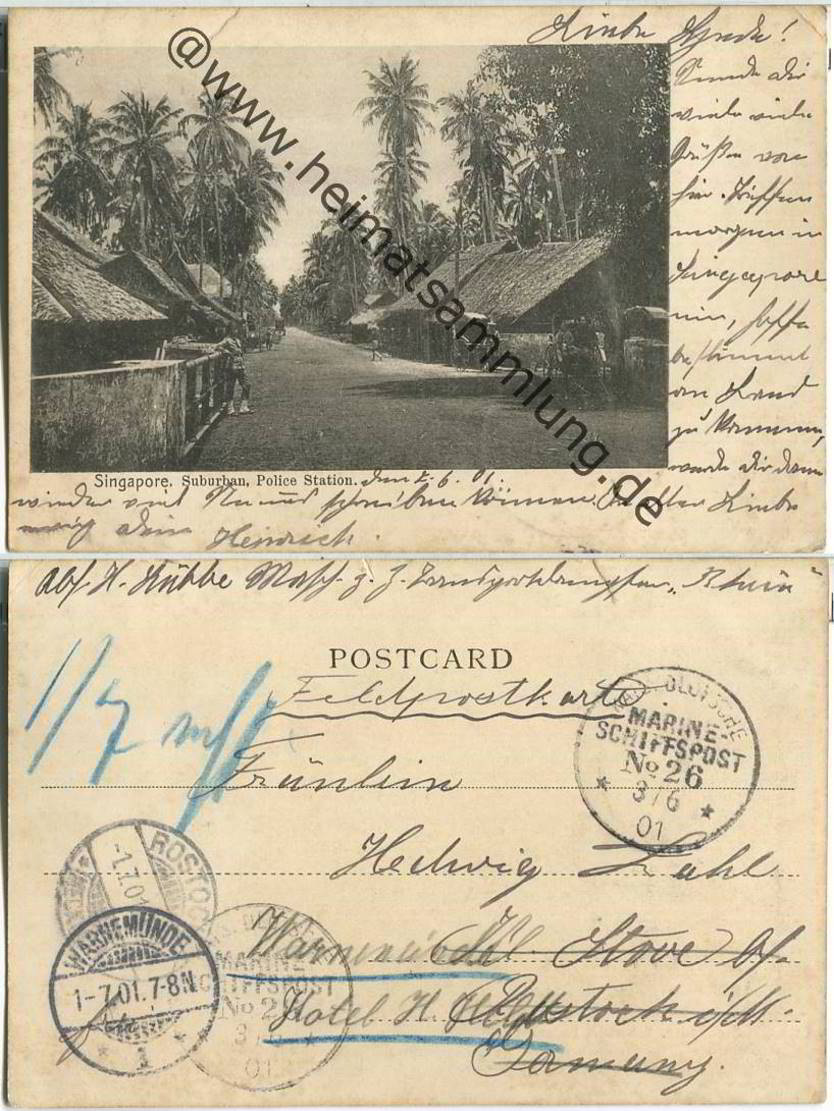 Liebe Hede!
Sende dir
viele viele
Grüße von
hier. Treffen
morgen in
Singapore
ein, hoffe
bestimmt
an Land
zu kommen,
werde dir dann
Singapore. Suburban, Police Station. den 2. 6. 01.
wieder viel schreiben können.
dein Heinrich.
www.heimatsammlung.de
Abs H. "Rhein"
POSTCARD
Feldpostkarte
Fräulein
Hedwig
Warnemünde
Stove
Hotel H.
Rostock i/M.
Germany.
1/7
DEUTSCHE
MARINE-
SCHIFFSPOST
No 26
3/6
01
ROSTOCK
-1.7.01
WARNEMÜNDE
1-7.01.7-8N
1
MARINE-
SCHIFFSPOST
No 26
3/6
01